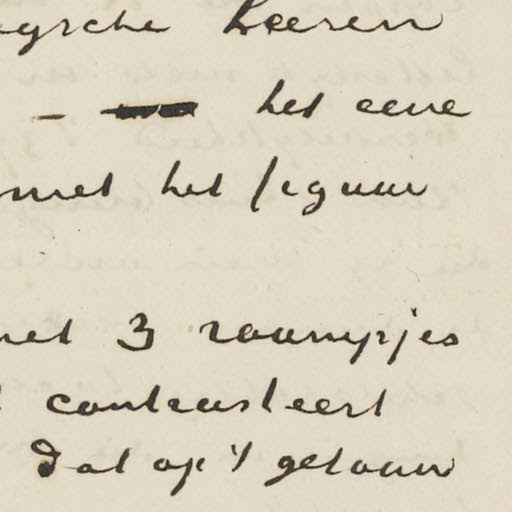 heeren
- het eene
met het figuur
met 3 raampjes
contrasteert
dat op 't getouw